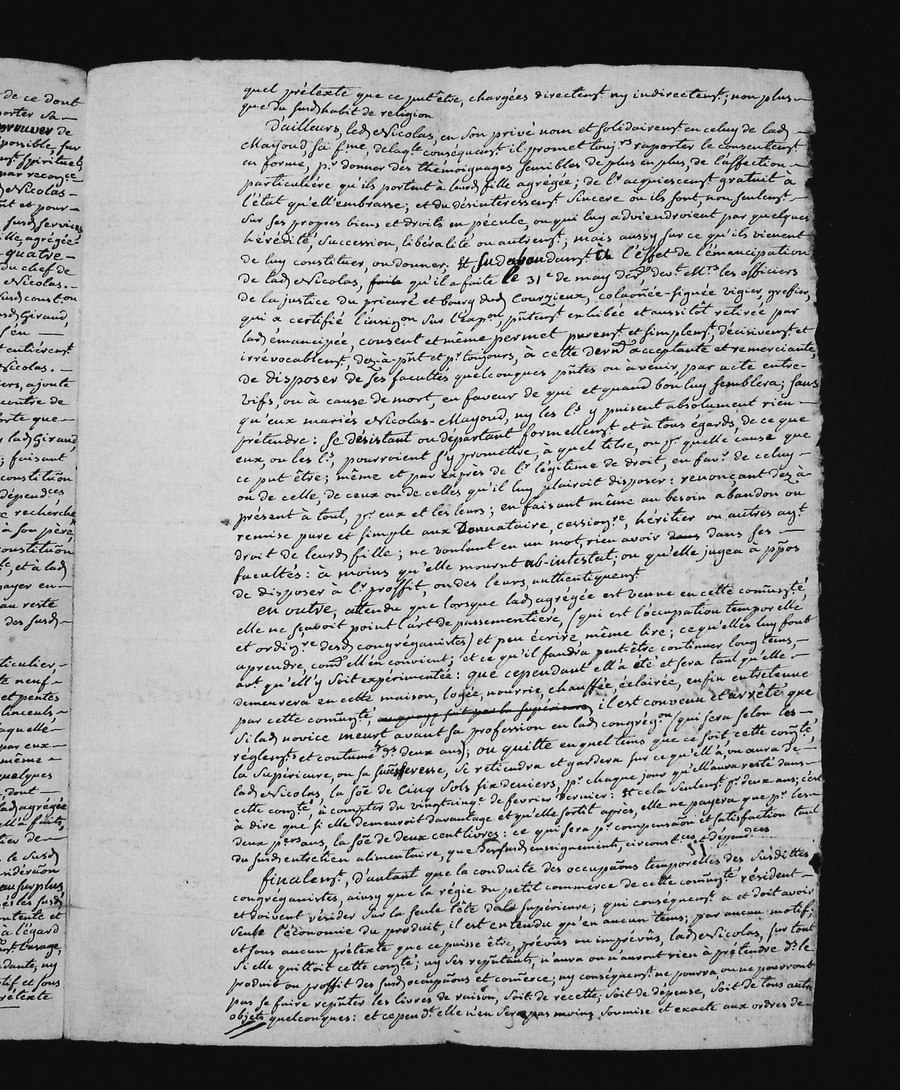 de ce dont
porter sa
prouver de
possible, sur
par reconce
Nicolas
et pour
susd services
fille, agrégée
quatre
du chef de
Nicolas.
susd constõn
susd Giraud,
s'en
entièremt
Nicolas.
ajoute
contre de
sorte que
lad Giraud,
; faisant
constitũon
dépendces
recherche
à son père,
constitũon
et à lad
payer en
au reste
des susd
ticulier,
te neuf
et pentes
linceuls
laquelle
par eux
même
quelques
dont
lad agrégée
tier de
le susd
sidérãon
au surplus
és les susd
ntente et
à l'égard
usage,
dante, ny
tif et sous
prétexte
quel prétexte que ce put être, chargées directemt ny indirectemt; non plus
que du susd habit de religion
D'ailleurs, led Nicolas, en son privé nom et solidairemt en celuy de lad
Mayoud, sa fme, delaqe conséquemt il promet toujrs raporter le consentemt
en forme, pr donner des thémoignages sensibles de plus en plus, de l'affection
particulière qu'ils portent à leurd fille agrégée; de lr acquiescemt gratuit à
l'état qu'elle embrasse; et du désintéressemt sincère ou ils sont, non seulemt
sur ses propres biens et droits en pécule, ou qui luy adviendroient par quelques
hérédité, succession, libéralité ou autremt; mais aussy sur ce qu'ils vienent
de luy constituer, ou donner, et à l'effet de l'émancipation
de lad Nicolas, qu'il a faite le 31e de may der, devt Mrs les officiers
de la justice du prieuré et bourg dud Courzieux, colaõnée signée vigier, greffier,
qui a certifié l'insinõn sur l'expõn, pñtemt exhibée et aussitôt retirée par
lad émancipée, consent et même permet puremt et simplemt, décisivemt et
irrévocablemt, dez-à-pñt et pr toujours, à cette dere acceptante et remerciante,
de disposer de ses facultés quelconques pñtes ou à venir, par acte entre
vifs, ou à cause de mort, en faveur de qui et quand bon luy semblera; sans
qu'eux mariés Nicolas-Mayoud, ny les lrs y puisent absolument rien
prétendre: se désistant ou départant formellemt et à tous égards, de ce que
eux, ou les lrs, pourroient s'y promettre, à quel titre, ou pr quelle cause que
ce put être; même et par exprès de lr légitime de droit, en favr de celuy
ou de celle, de ceux ou de celles qu'il luy plairoit disposer: renonçant dez-à
présent à tout, pr eux et les leurs; en faisant même au besoin abandon ou
remise pure et simple aux Donnataire, cessionre, héritier ou autres ayt
droit de leurd fille; ne voulant en un mot, rien avoir dans ses
facultés: à moins qu'elle mourut ab-intestat; ou qu'elle jugea à ppos
de disposer à lr proffit, ou des leurs, authentiquemt
En outre, attendu que lorsque lad agrégée est venue en cette comũnté,
elle ne sçavoit point l'art de passementière, (qui est l'occupation temporelle
et ordinre desd congréganistes) et peu écrire, même lire; ce qu'elles luy font
aprendre, come elle en convient; et ce qu'il faudra peut être continuer long tems,
avt qu'elle y soit expérimentée: que cependant elle a été et sera tant qu'elle
demeurera en cette maison, logée, nourrie, chauffée, éclairée, enfin entretenue
par cette comũnté, il est convenu et arrêté que
si lad novice meurt avant sa profession en lad congrégãon, (qui sera selon les
réglemts et coutume de deux ans); ou quitte en quel tems que ce soit cette comté,
la Supérieure, ou sa successeresse, se retiendra et gardera sur ce qu'elle a, ou aura de
lad Nicolas, la sõe de Cinq sols six deniers, pr chaque jour qu'elle aura resté dans
cette comté, à compter du vingt cinqe de février dernier: et cela seulemt pr deux ans; c'est
à dire que si elle demeuroit davantage et qu'elle sortit après, elle ne payera que pr les
deux prs ans, la sõe de deux cent livres: ce qui sera pr compensãon et satisfaction tant
du susd entretien alimentaire, que dessusd enseignement, circonstces et dépendces
finalemt, d'autant que la conduite des occupãons temporelles des susdittes
congréganistes, ainsy que la régie du petit commerce de cette comũnté résident
et doivent résider sur la seule tête de la supérieure; qui conséquemt a et doit avoir
seule l'économie du produit, il est entendu qu'en aucun tems; par aucun motif;
et sous aucun prétexte que ce puisse être, prévus ou imprévus, lad Nicolas, sur tout
si elle quittoit cette comté; ny ses reprétants, n'aura ou n'auront rien à prétendre ds le
produit ou proffit des susd occupãons et comerce; ny conséquemt ne pourra, ou ne pourront
pas se faire représenter les livres de raison, soit de recette, soit de dépense, soit de tous autre
objets quelconques: et cependt elle n'en sera pas moins soumise et exacte aux ordres de